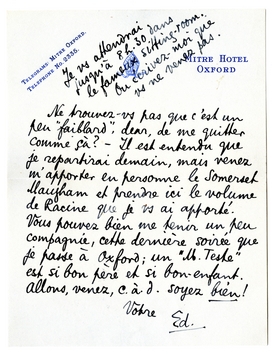 TELEGRAMS: MITRE OXFORD.
TELEPHONE NO. 2335.
MITRE HOTEL
OXFORD
Je vs attendrai
jusqu'à 8h.30 dans
le fameux sitting-room.
Ou écrivez moi que
vs ne venez pas.
Ne trouvez-vs pas, que c'est un
peu "faiblard", dear, de me quitter
comme çà? – Il est entendu que
je repartirai demain, mais venez
m'apporter en personne le Somerset
Maugham et prendre ici le volume
de Racine que je vs ai apporté.
Vous pouvez bien me tenir un peu
compagnie, cette dernière soirée que
je passe à Oxford; un "M. Teste"
est si bon père et si bon-enfant.
Allons, venez, c.à d. soyez bien!
Votre
Ed.